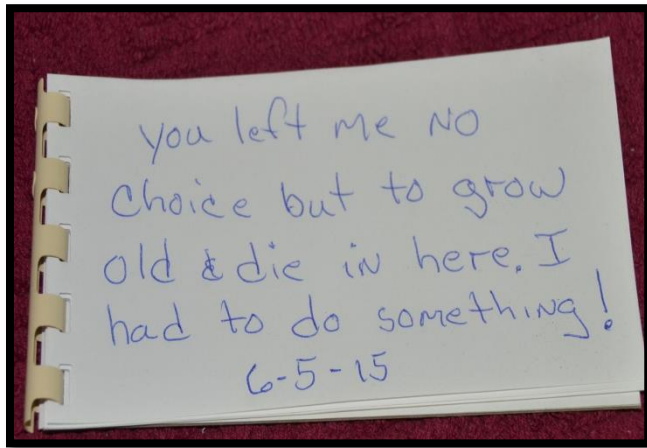 you left me NO
choice but to grow
old & die in here. I
had to do something!
6-5-15